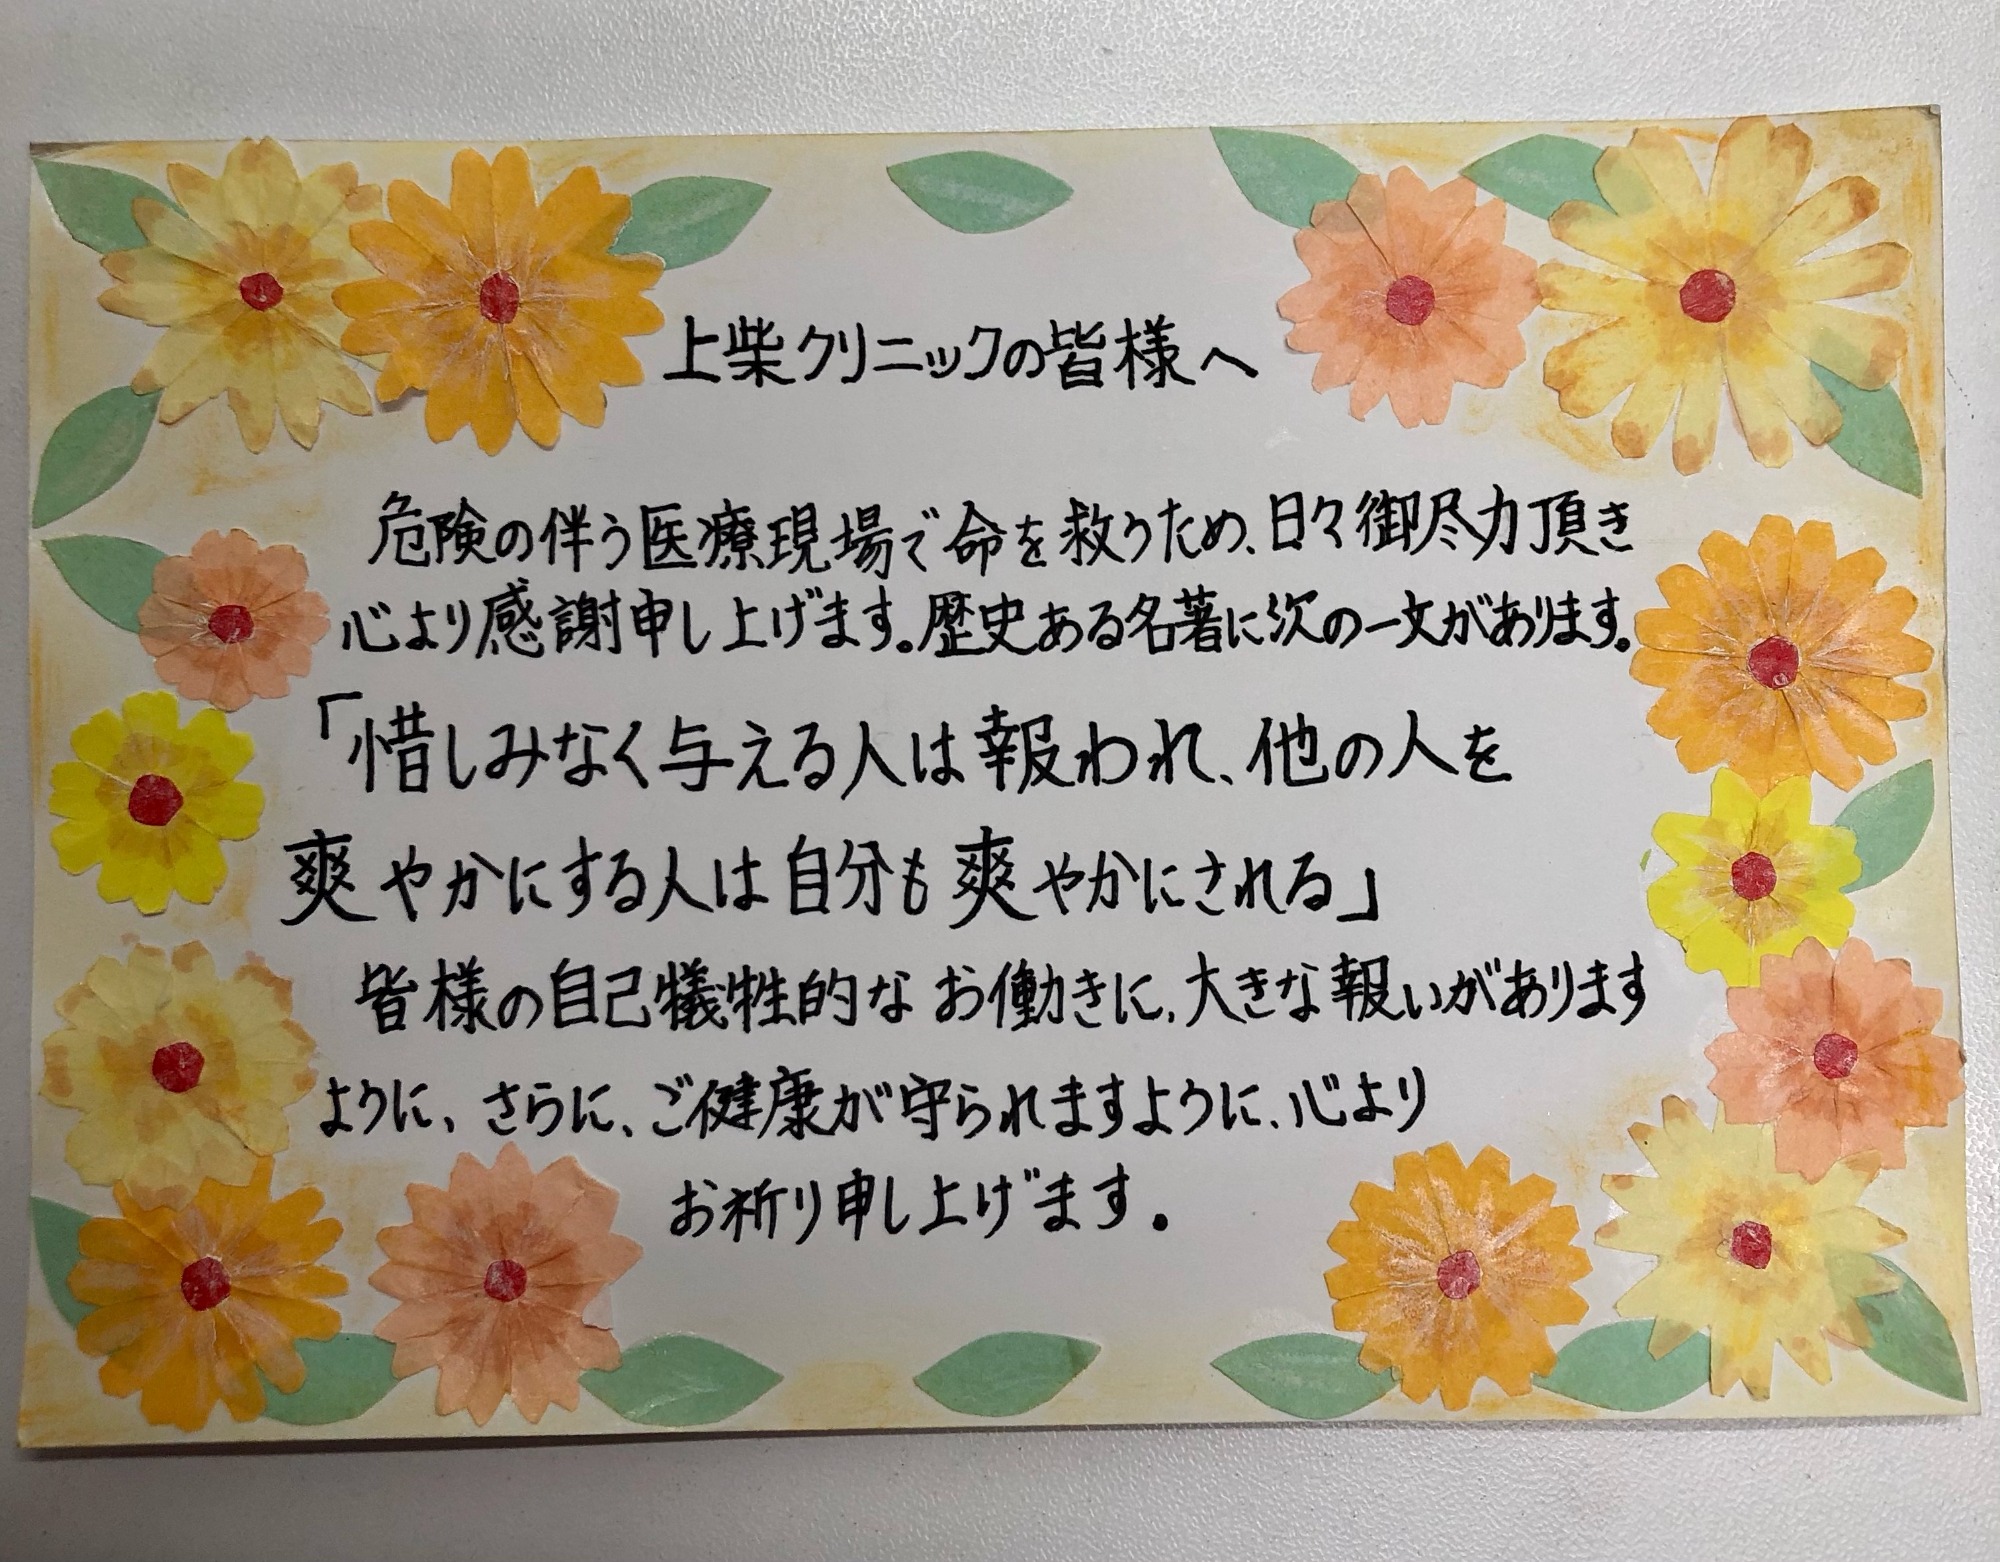 上柴クリニックの皆様へ
危険の伴う医療現場で命を救うため、日々御尽力頂き
心より感謝申し上げます。歴史ある名著に次の一文があります。
「惜しみなく与える人は報われ、他の人を
爽やかにする人は自分も爽やかにされる」
皆様の自己犠牲的なお働きに、大きな報いがあります
ように、さらに、ご健康が守られますように、心より
お祈り申し上げます。